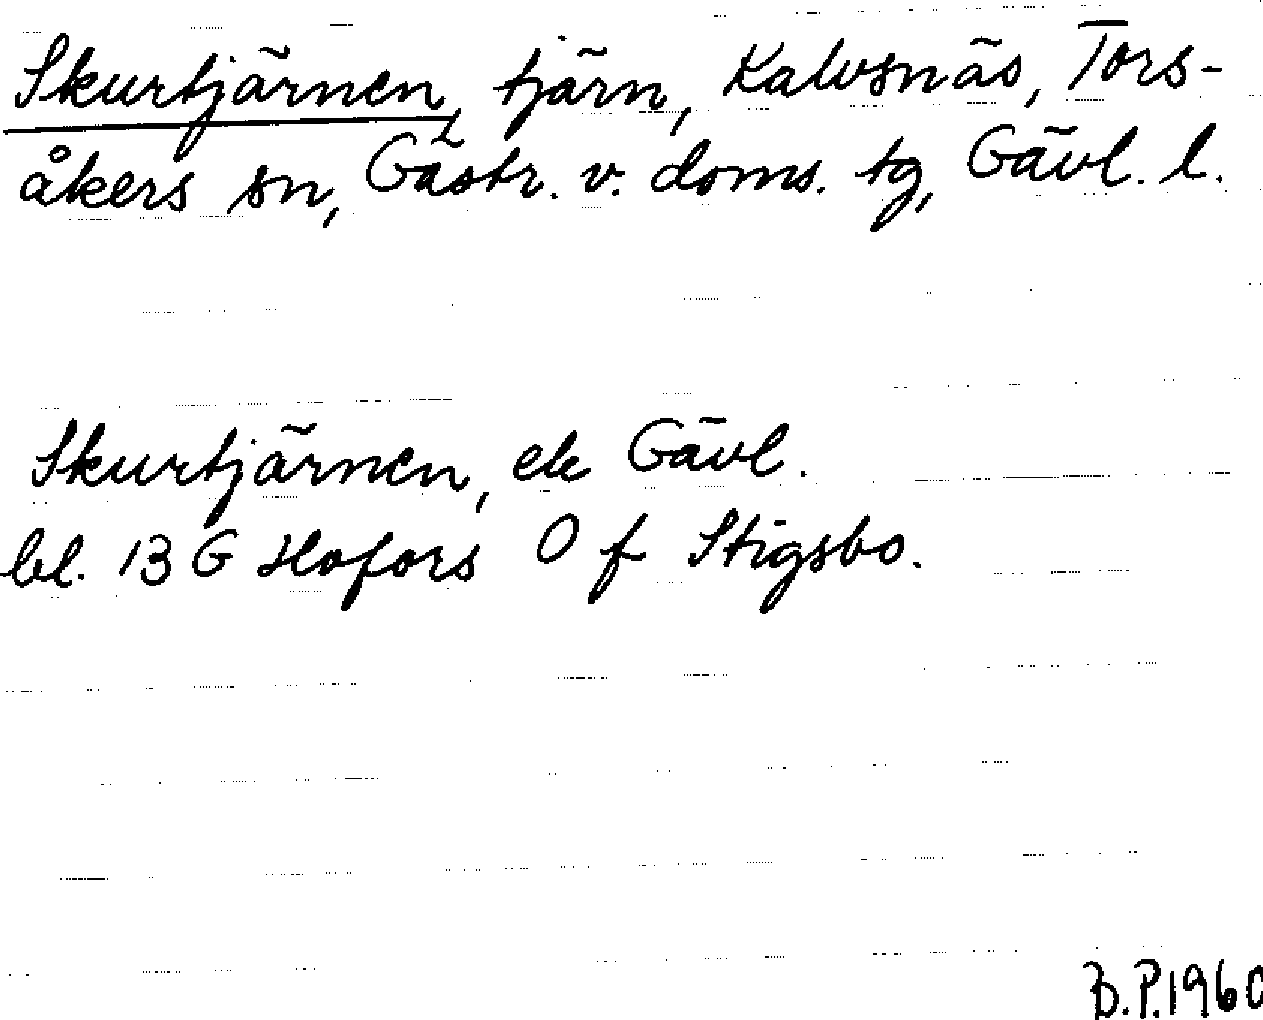 Skurtjärnen, tjärn, Kalvsnäs, Tors-
åkers sn, Gästr. v. doms. tg, Gävl. l.
Skurtjärnen, ek Gävl.
bl. 13 G Hofors O f Stigsbo.
B.P.1960